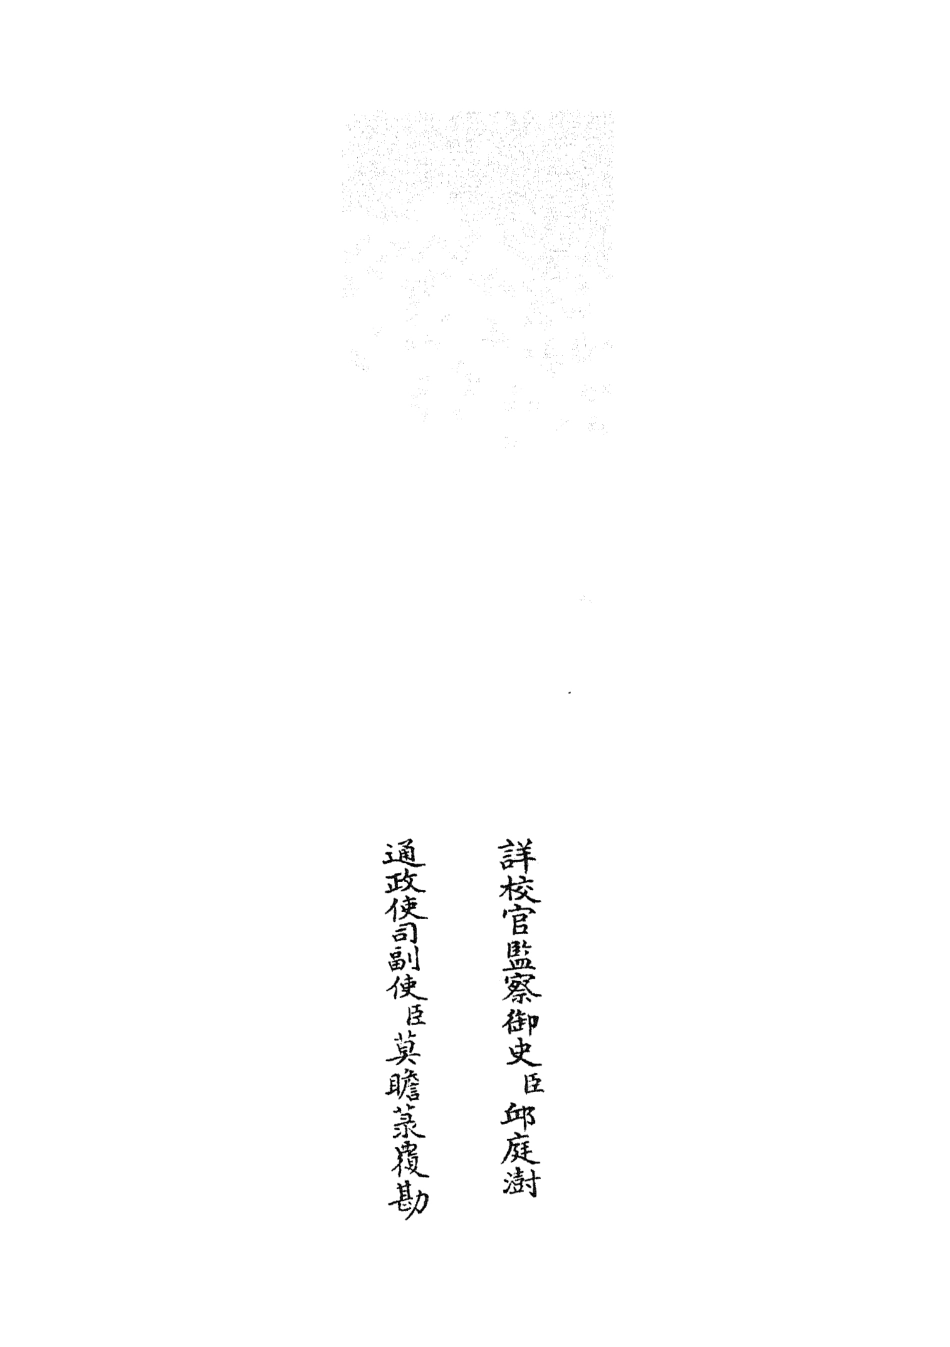 詳校官監察御史臣邱庭澍
通政使司副使臣莫瞻菉覆勘